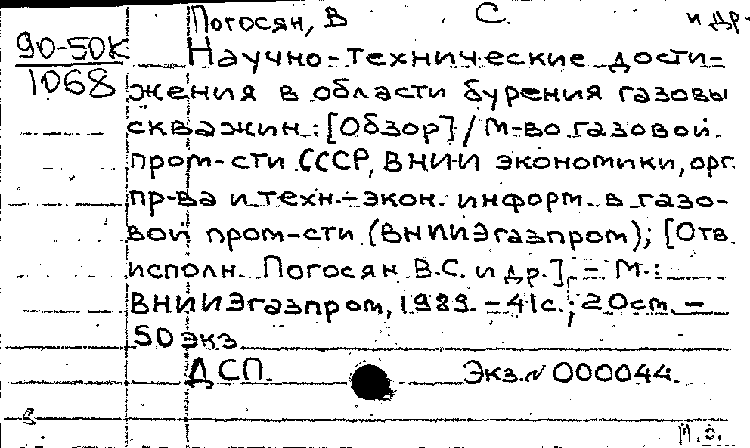 Погосян, В С. и др.
90-50К
1068
Научно-технические дости-
жения в области бурения газовы
скважин : [Обзор] / М-во газовой
пром-сти СССР, ВНИИ экономики, орг.
пр-ва и техн.-экон. информ. в газо-
вой пром-сти (ВНИИЭгазпром); [Отв.
исполн. Погосян В.С. и др.]. - М.:
ВНИИЭгазпром, 1989. - 41с.; 20см. -
50 экз
ДСП. Экз. № 000044.